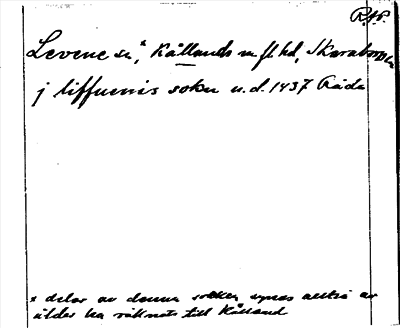 R.A.P.
Levene sn*, Kållands m fl hd, Skaraborgs l
j liffuenis sokn u.d. 1437 Råda
* delar av denna socken synas alltså av
ålder ha räknats till Kålland